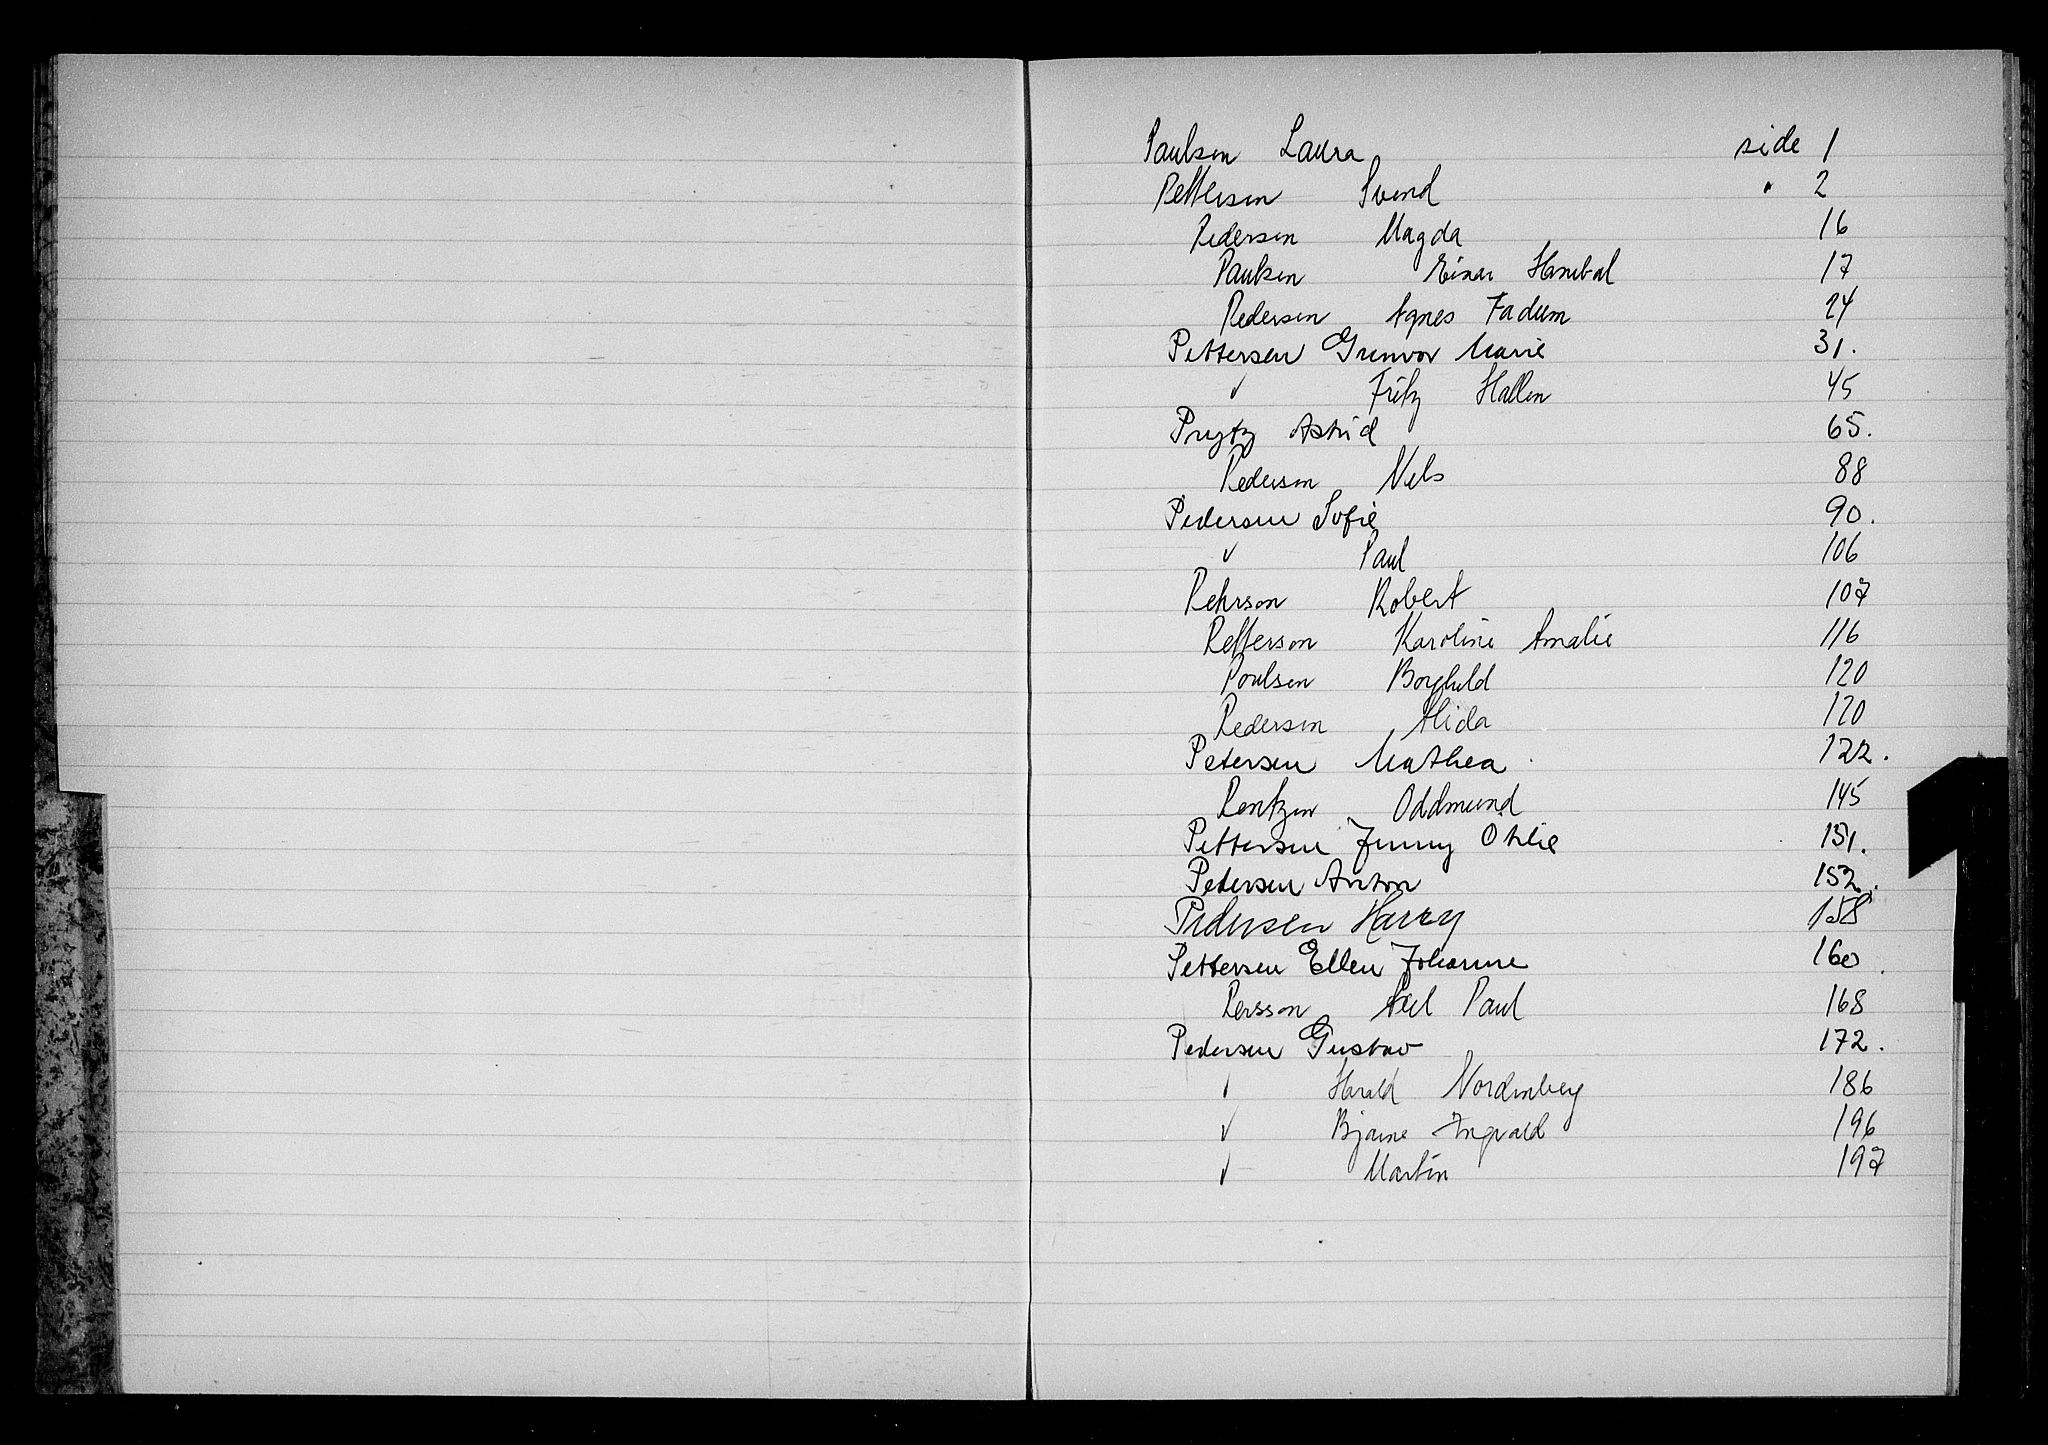 Paulsen Laura side 1
Pettersen Svend " 2
Pedersen Magda 16
Paulsen Einar Hanibal 17
Pedersen Agnes Fadum 24
Pettersen Gunvor Marie 31.
" Fritz Hallen 45
Prytz Astrid 65.
Pederson Nels 88
Pedersen Sofie 90.
" Paul 106
Pehrson Robert 107
Petterson Karoline Amalie 116
Poulsen Borghild 120
Pedersen Alida 120
Petersen Mathea 122.
Pentzen Oddmund 145
Pettersen Jenny Otilie 151.
Petersen Anton 152.
Pedersen Harry 158
Pettersen Ellen Johanne 160.
Persson Axel Paul 168
Pedersen Gustav 172.
" Harald Nordenberg 186
" Bjarne Ingvald 196
" Martin 197